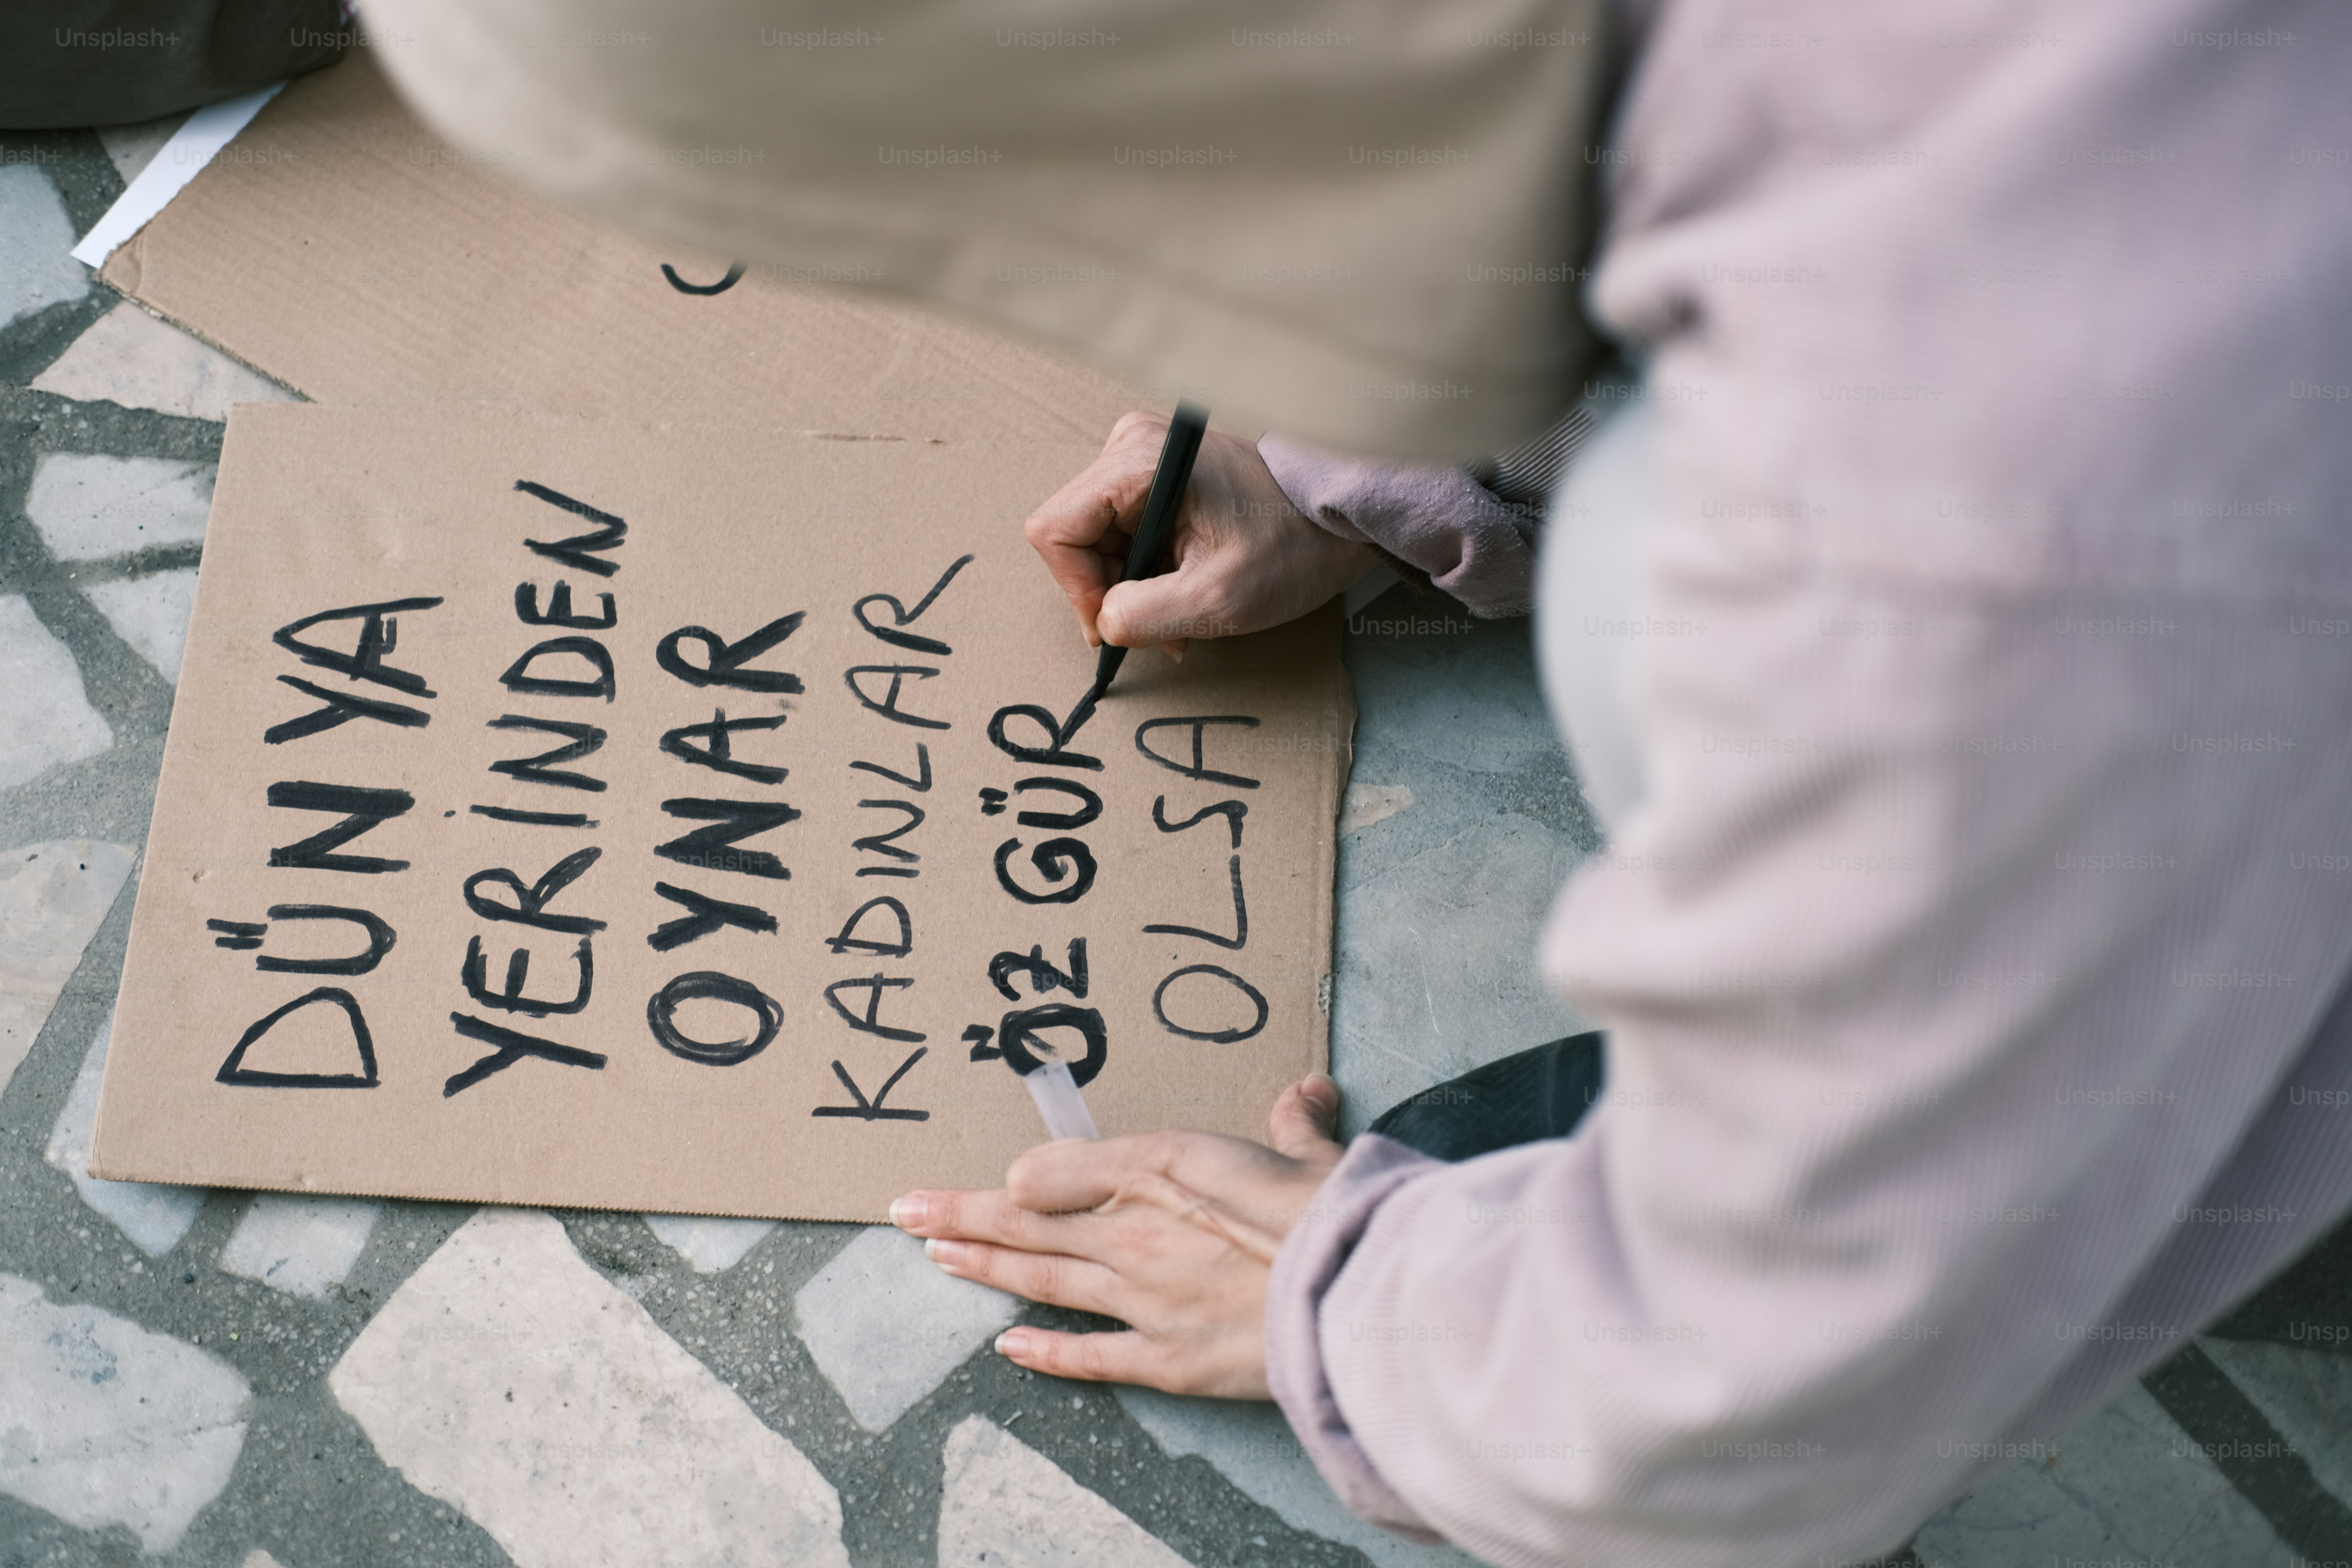 DÜNYA
YERİNDEN
OYNAR
KADINLAR
ÖZGÜR
OLSA